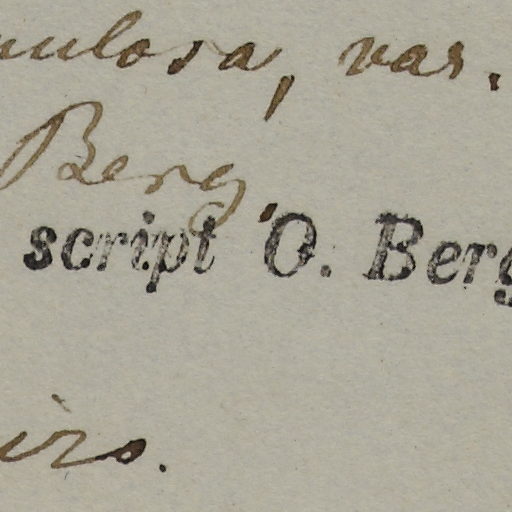 nulosa, var.
Berg.
script O. Berg
irs.